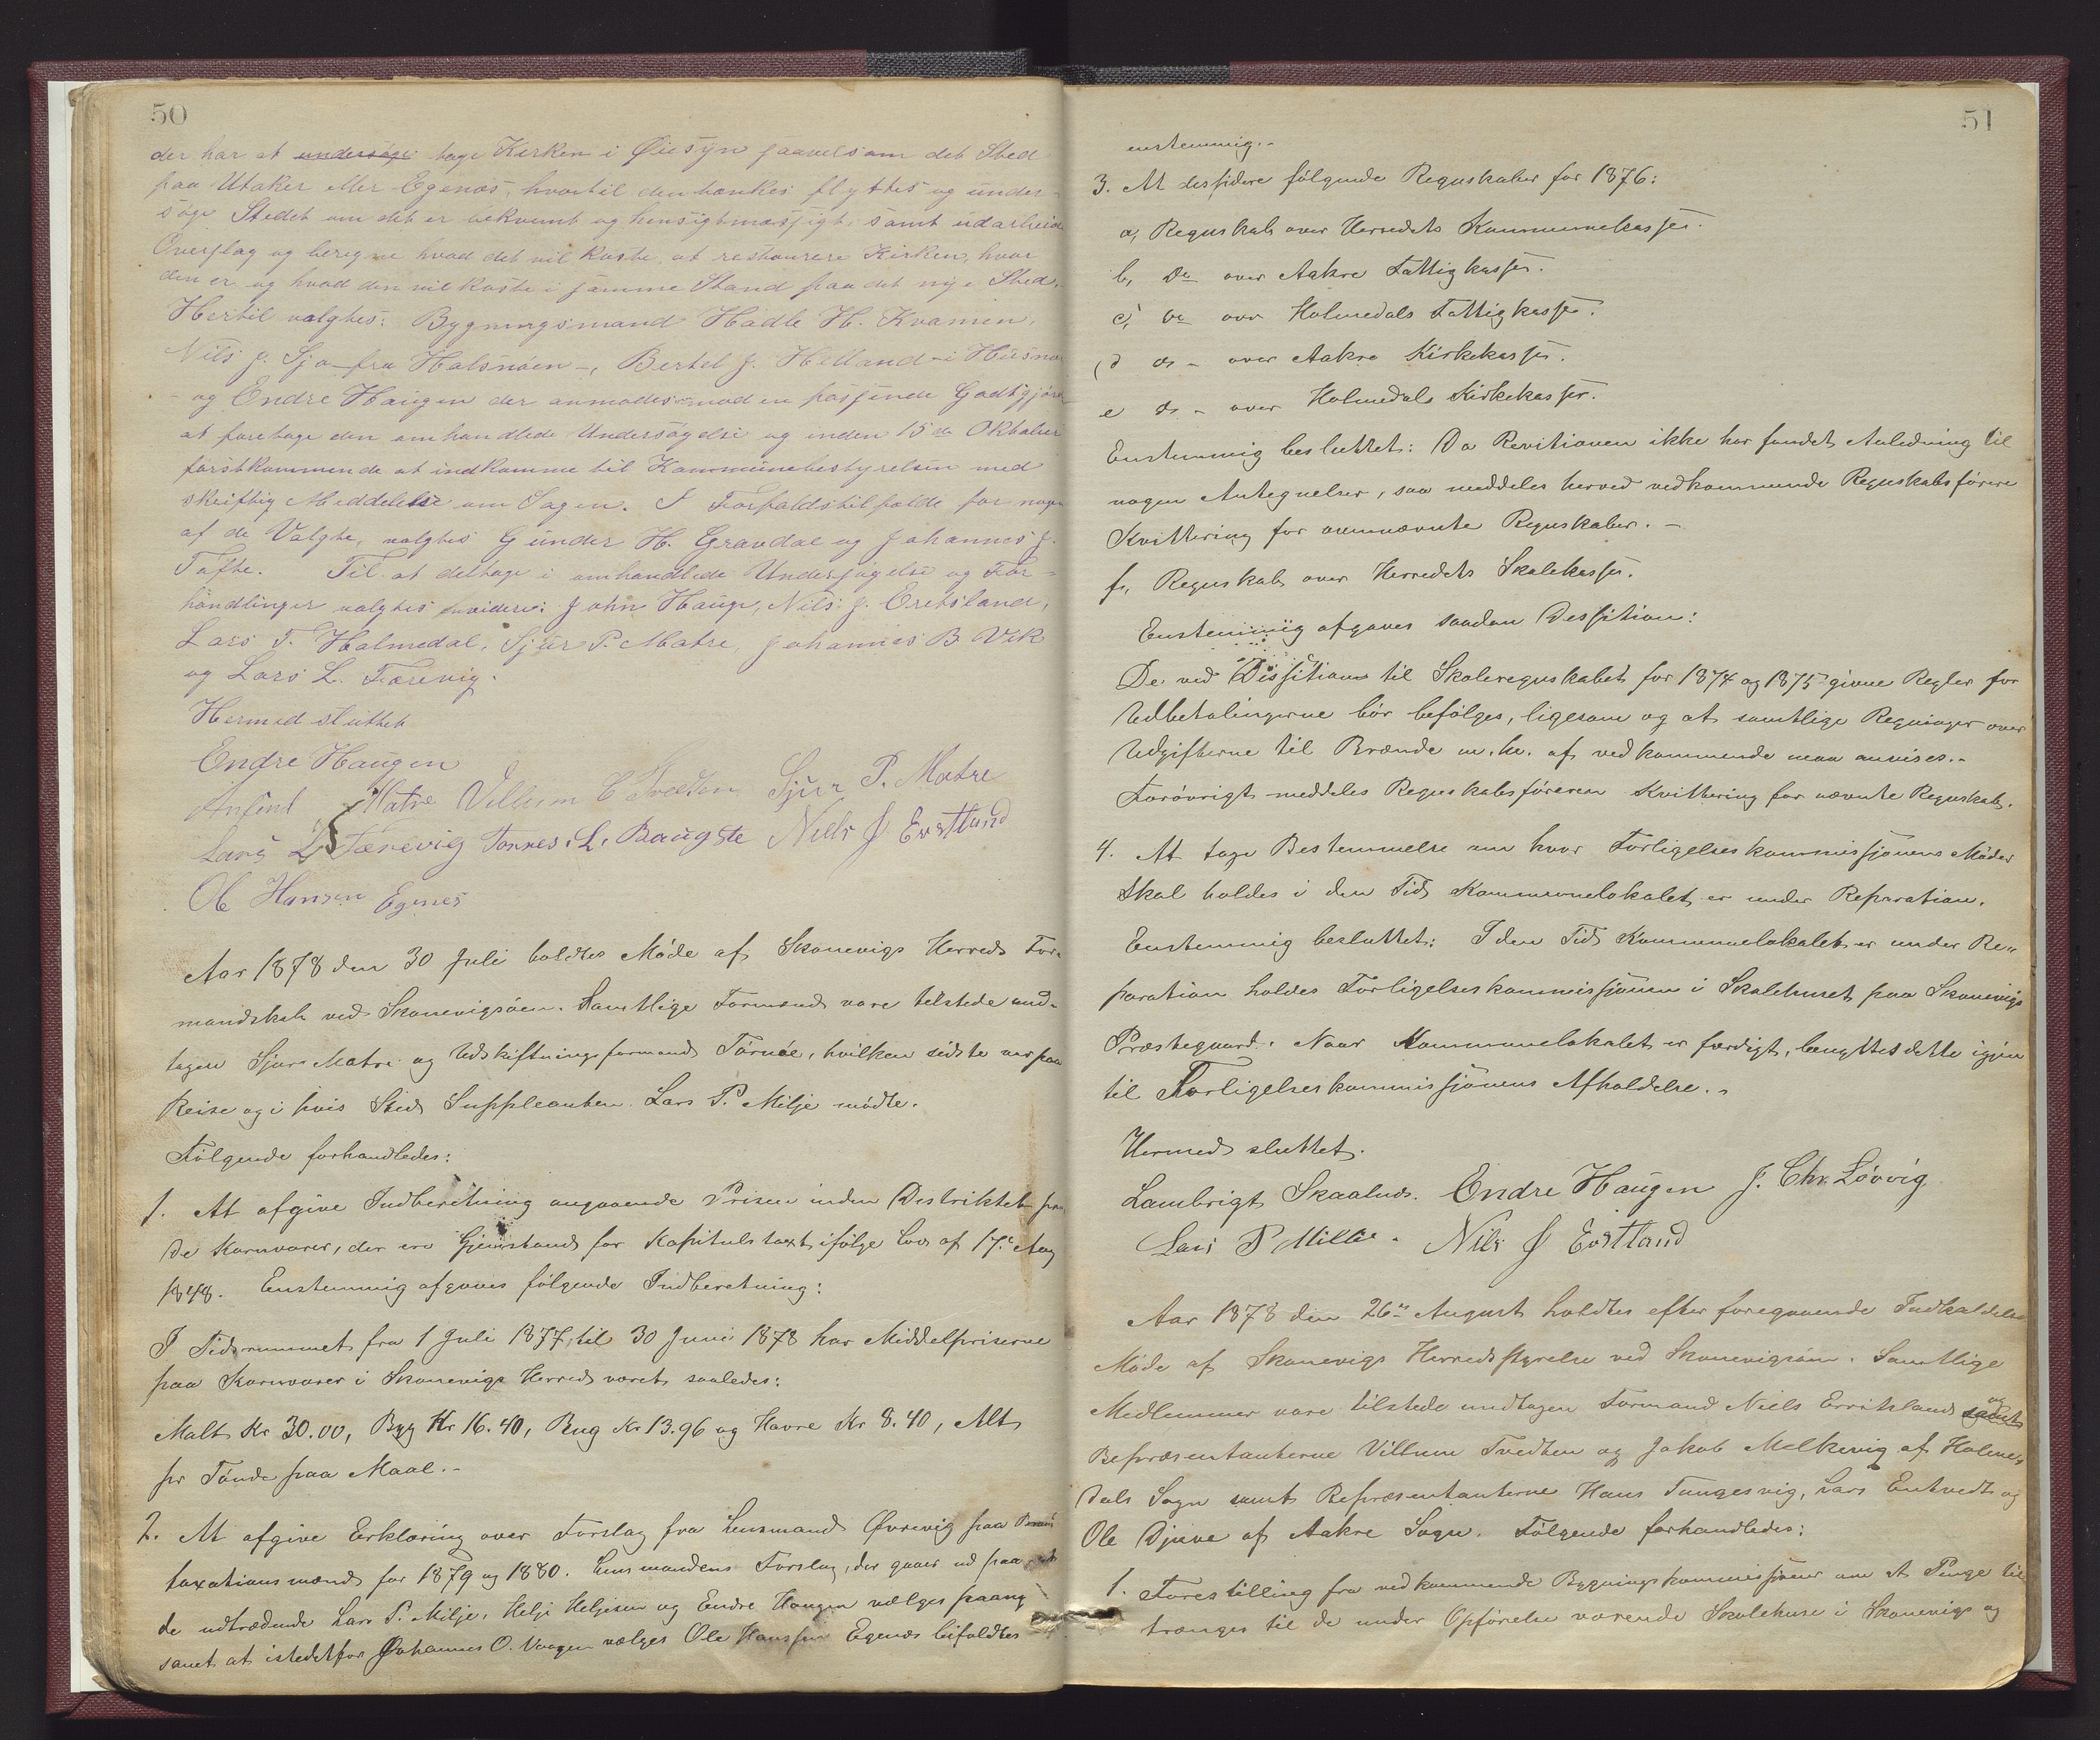 50
der har at undersøge tage Kirken i Øiesyn saavelsom det Sted
paa Utaker eller Egenæs, hvortil den tænkes flyttes og under-
søge Stedet om det er bekvemt og hensigtmæssigt, samt udarbeide
Overslag og beregne hvad det vil koste, at restaurere Kirken, hvor
den er og hvad den vil koste i samme Stand paa det nye Sted.
Hertil valgtes: Bygningsmand Hadle H. Kvamen,
Nils J. Sjo fra Halsnöen -, Bertel J. Helland i Husnæs
og Endre Haugen der anmodes mod en passende Godtgjørelse
at foretage den omhandlede Undersøgelse og inden 15de Oktober
førstkommende at indkomme til Kommunebestyrelsen med
skriftlig Meddelelse om Sagen. I Forfaldstilfælde for nogen
af de Valgte, valgtes Gunder H. Gravdal og Johannes J.
Tofte. Til at deltage i omhandlede Undersøgelse og For-
handlinger valgtes videre: John Hauge, Nils J. Eretsland,
Lars T. Holmedal, Sjur P. Matre, Johannes B. Vik
og Lars L. Færevig.
Hermed sluttet
Endre Haugen
Anfind Matre Villum C Tvedten Sjur P. Matre
Lars L Færevig Tønnes. L. Baugste Niels J Erstland
Ole Hansen Egenes
Aar 1878 den 30 Juli holdtes Møde af Skonevigs Herreds For-
mandskab ved Skonevigsøen. Samtlige Formænd vare tilstede und-
tagen Sjur Matre og Udskiftningsformand Törnöe, hvilken sidste var paa
Reise og i hvis Sted Suppleanten Lars P. Milje mødte.
Følgende forhandledes:
1. At afgive Indberetning angaaende Prisen inden Distriktet paa
de Kornvarer, der ere Gjenstand for Kapitulstaxt ifølge Lov af 17de Aug
1848. Enstemmig afgaves følgende Indberetning:
I Tidsrummet fra 1 Juli 1877 til 30 Juni 1878 har Middelpriserne
paa Kornvarer i Skonevigs Herred været saaledes:
Malt Kr 30.00, Byg Kr 16.40, Rug Kr 13.96 og Havre Kr 8.40, Alt
pr Tønde paa Maal.-
2. At afgive Erklæring over Forslag fra Lensmand Øvrevig paa
taxationsmænd for 1879 og 1880. Lensmandens Forslag, der gaaer ud paa at
de udtrædende Lars P. Milje, Helje Heljesen og Endre Haugen vælges paany
samt at istedetfor Johannes O. Vaagen vælges Ole Hanssen Egenæs bifaldtes
51
enstemmig.-
3. At desidere følgende Regnskaber for 1876:
a, Regnskab over Herredets Kommunekasse.
b, Do over Aakre Fattigkasse.
c, Do over Holmedals Fattigkasse.
d do - over Aakre Kirkekasse.
e do - over Holmedals Kirkekasse.
Enstemmig besluttet: Da Revitionen ikke har fundet Anledning til
nogen Antegnelser, saa meddeles herved vedkommende Regnskabsførere
Kvittering for ovennævnte Regnskaber. -
f, Regnskab over Herredets Skolekasse.
Enstemmig afgaves saadan Dessition:
De ved Dissitionen til Skoleregnskabet for 1874 og 1875 givne Regler for
Udbetalingerne bör befölges, ligesom og at samtlige Regninger over
Udgifterne til Brænde m.m. af vedkommende maa anvises.-
Forøvrigt meddeles Regnskabsføreren Kvittering for nævnte Regnskab.
4. At tage Bestemmelse om hvor Forligelseskommissjonens Møder
skal holdes i den Tid Kommunelokalet er under Reparation.
Enstemmig besluttet: I den Tid Kommunelokalet er under Re-
paration holdes Forligelseskommissjonen i Skolehuset paa Skonevigs
Præstegaard. Naar Kommunelokalet er færdigt, benyttes dette igjen
til Forligelseskommissjonens Afholdelse.-
Hermed sluttet.
Lambrigt Skaalnes. Endre Haugen J. Chr. Lövvig
Lars P Millie. Nils J Erstland
Aar 1878 den 26de August holdtes efter foregaaende Indkaldelse
Møde af Skonevigs Herredsstyrelse ved Skonevigsøen. Samtlige
Medlemmer vare tilstede undtagen Formand Niels Erritsland samt og
Repræsentanterne Villum Tvedten og Jakob Melkevig af Holme-
dals Sogn samt Repræsentanterne Hans Tungesvig, Lars Entvedt og
Ole Djuve af Aakre Sogn. Følgende forhandledes:
1. Forestilling fra vedkommende Bygningskommissjoner om at Penge til
trænges til de under Opförelse værende Skolehuse i Skonevigs og